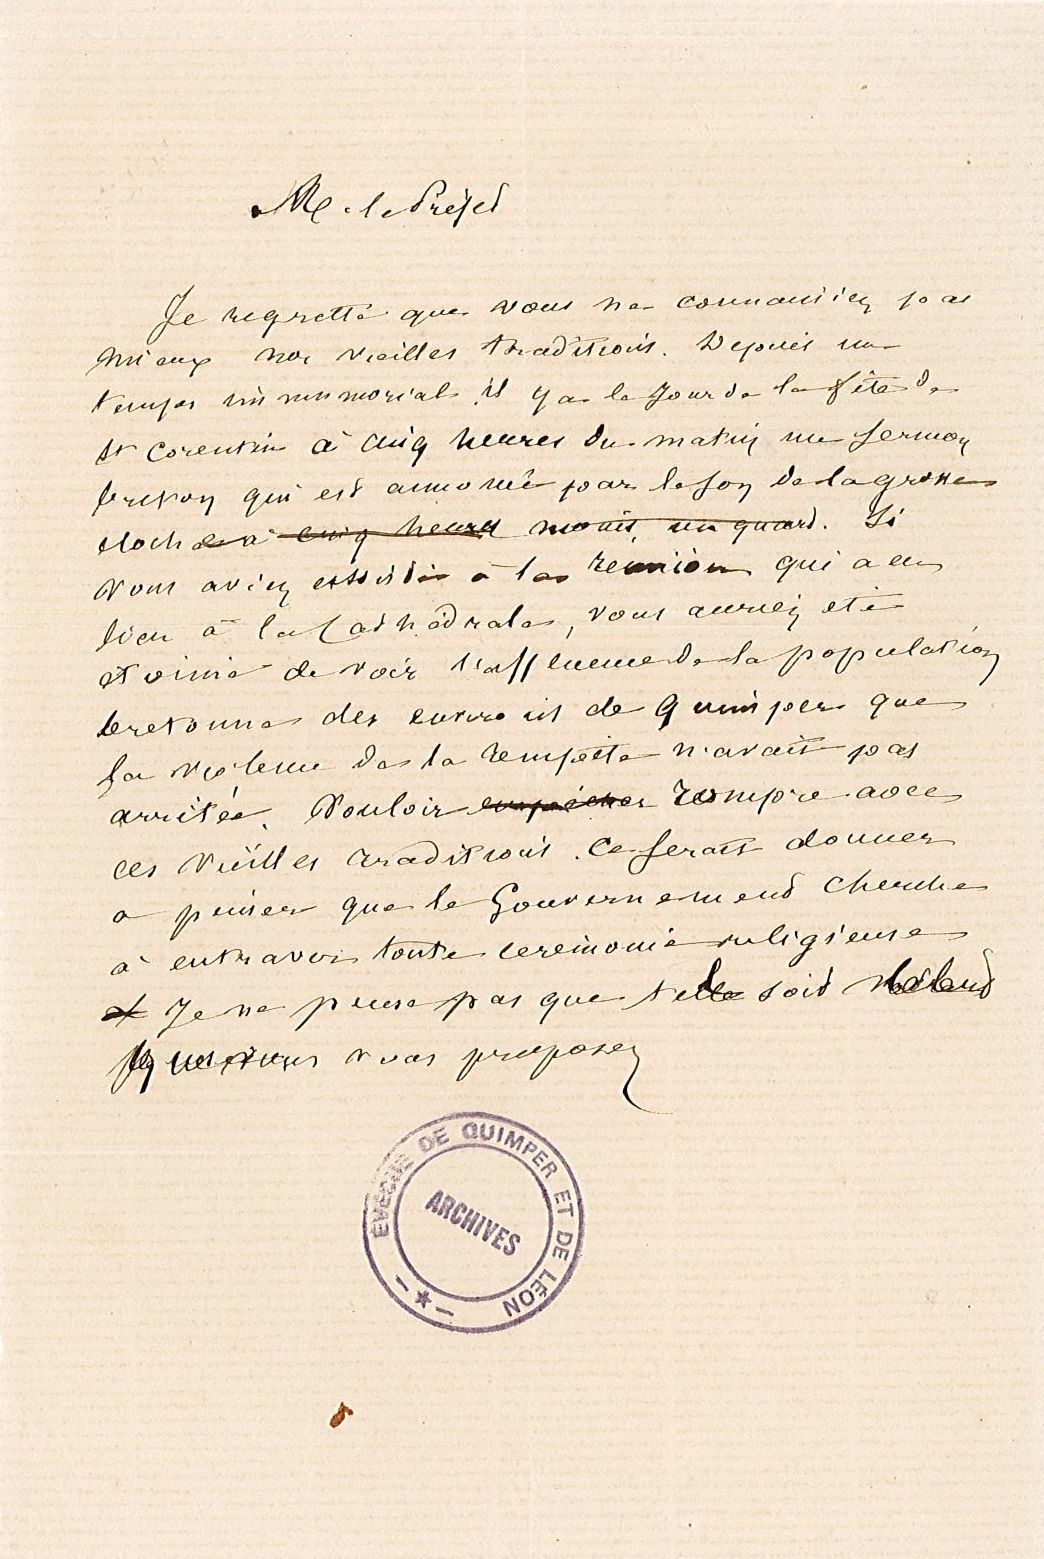 M. le Préfet
Je regrette que vous ne connaissiez pas
mieux nos vieilles traditions. Depuis un
temps immémorial il y a le jour de la fête de
St Corentin à cinq heures du matin un sermon
breton qui est annoncé par le son de la grosse
cloche à cinq heures moins un quart. Si
vous aviez assisté à la réunion qui a eu
lieu à la Cathédrale, vous auriez été
étonné de voir l'affluence de la population
bretonne des environs de Quimper que
la violence de la tempête n'avait pas
arrêtée. Vouloir empêcher rompre avec
ces vieilles traditions. Ce serait donner
a penser que le Gouvernement cherche
à entraver toute cérémonie religieuse
et Je ne pense pas que telle soit
vous proposez
ÉVÊCHÉ DE QUIMPER ET DE LÉON
ARCHIVES